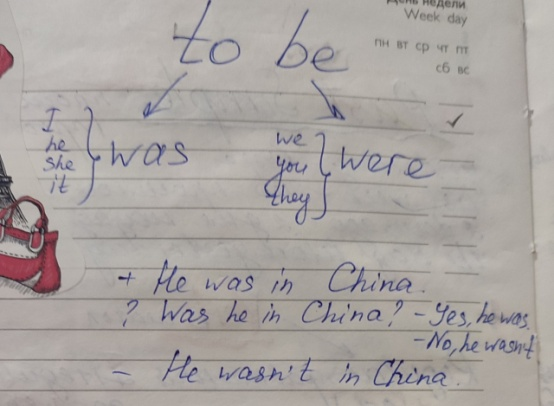 День недели
Week day
пн вт ср чт пт
сб вс
to be
I
he
she
it
was
we
you
they
were
+ He was in China.
? Was he in China? - Yes, he was.
- No, he wasn't
- He wasn't in China.